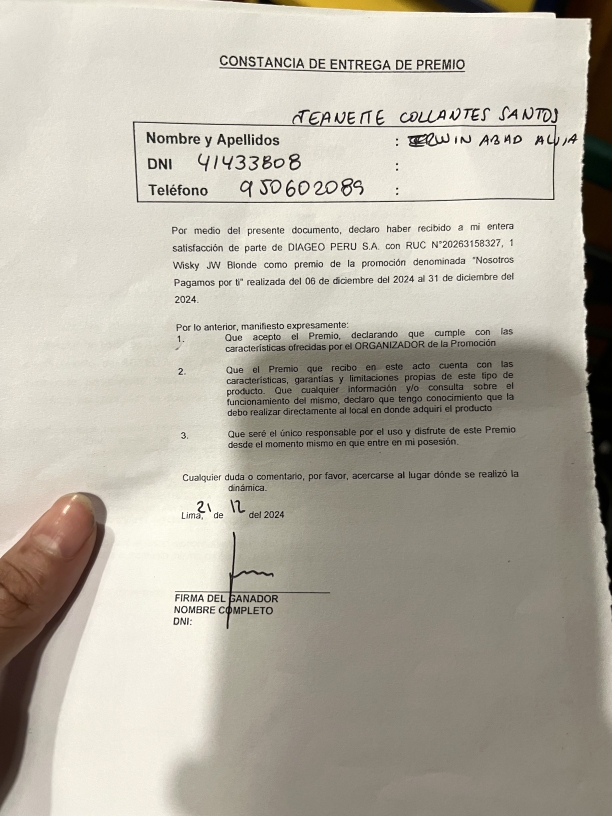 CONSTANCIA DE ENTREGA DE PREMIO
JEANETTE COLLANTES SANTOS
Nombre y Apellidos : ERWIN ABAD
DNI 41433808 :
Teléfono 950602089 :
Por medio del presente documento, declaro haber recibido a mi entera
satisfacción de parte de DIAGEO PERU S.A. con RUC N°20263158327, 1
Wisky JW Blonde como premio de la promoción denominada "Nosotros
Pagamos por ti" realizada del 06 de diciembre del 2024 al 31 de diciembre del
2024.
Por lo anterior, manifiesto expresamente:
1. Que acepto el Premio, declarando que cumple con las
características ofrecidas por el ORGANIZADOR de la Promoción
2. Que el Premio que recibo en este acto cuenta con las
características, garantías y limitaciones propias de este tipo de
producto. Que cualquier información y/o consulta sobre el
funcionamiento del mismo, declaro que tengo conocimiento que la
debo realizar directamente al local en donde adquirí el producto
3. Que seré el único responsable por el uso y disfrute de este Premio
desde el momento mismo en que entre en mi posesión.
Cualquier duda o comentario, por favor, acercarse al lugar dónde se realizó la
dinámica.
Lima, 21 de 12 del 2024
FIRMA DEL GANADOR
NOMBRE COMPLETO
DNI: